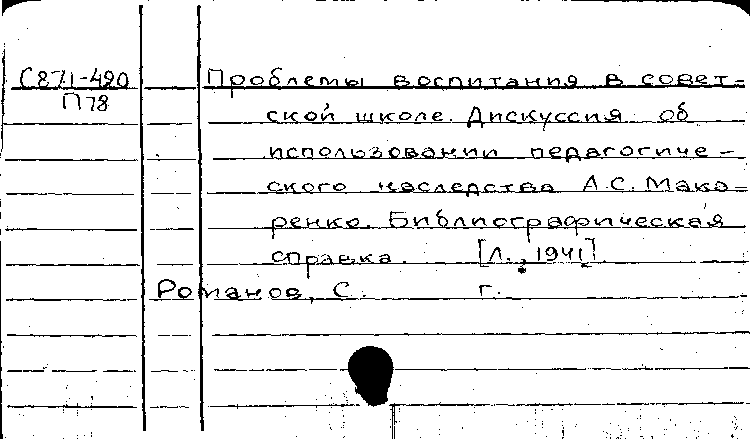 С871-420 Проблемы воспитания в совет-
П78
ской школе. Дискуссия об
использовании педагогиче-
ского наследства А.С. Мака-
ренко. Библиографическая
справка. [Л., 1941].
Романов, С. г.